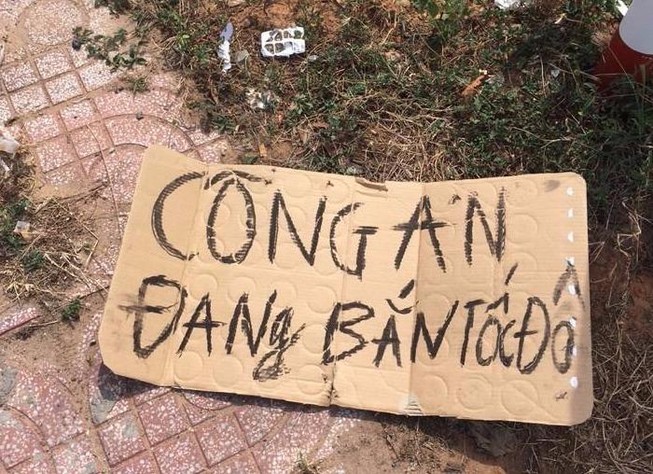 CÔNG AN
ĐANg BẮN TỐC ĐỘ